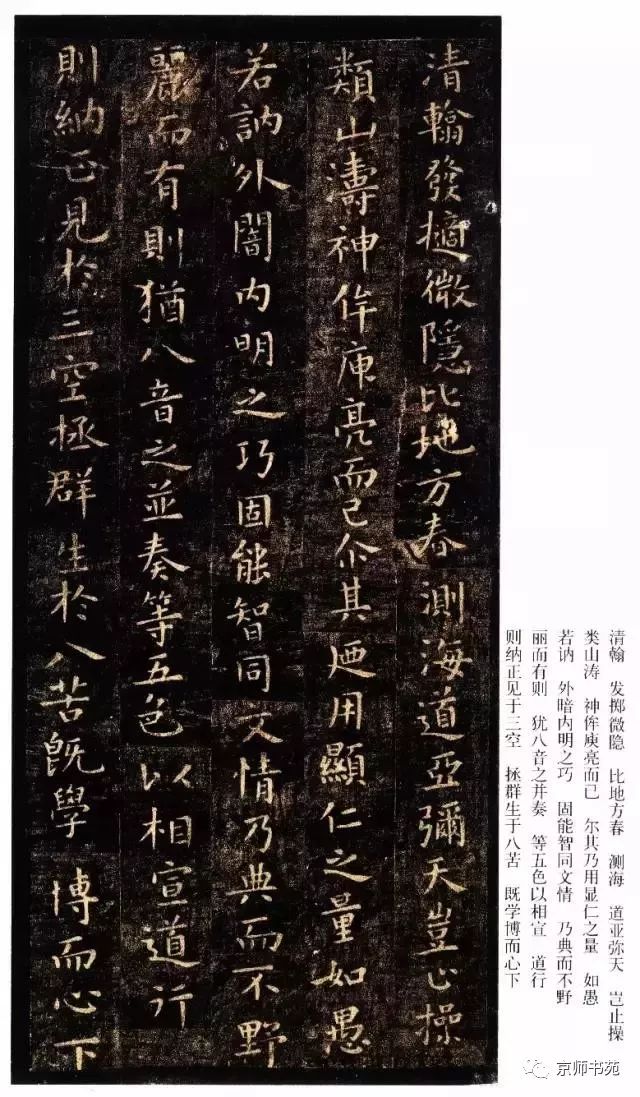 清翰發擿微隱比地方春測海道亞彌天豈止操
類山濤神侔庾亮而已尒其迺用顯仁之量如愚
若訥外闇內明之巧固能智同文情乃典而不野
麗而有則猶八音之並奏等五色以相宣道行
則納正見於三空拯群生於八苦既學博而心下
清翰　发掷微隐　比地方春　测海　道亚弥天　岂止操
类山涛　神侔庾亮而已　尔其乃用显仁之量　如愚
若讷　外暗内明之巧　固能智同文情　乃典而不野
丽而有则　犹八音之并奏　等五色以相宣　道行
则纳正见于三空　拯群生于八苦　既学博而心下
京师书苑